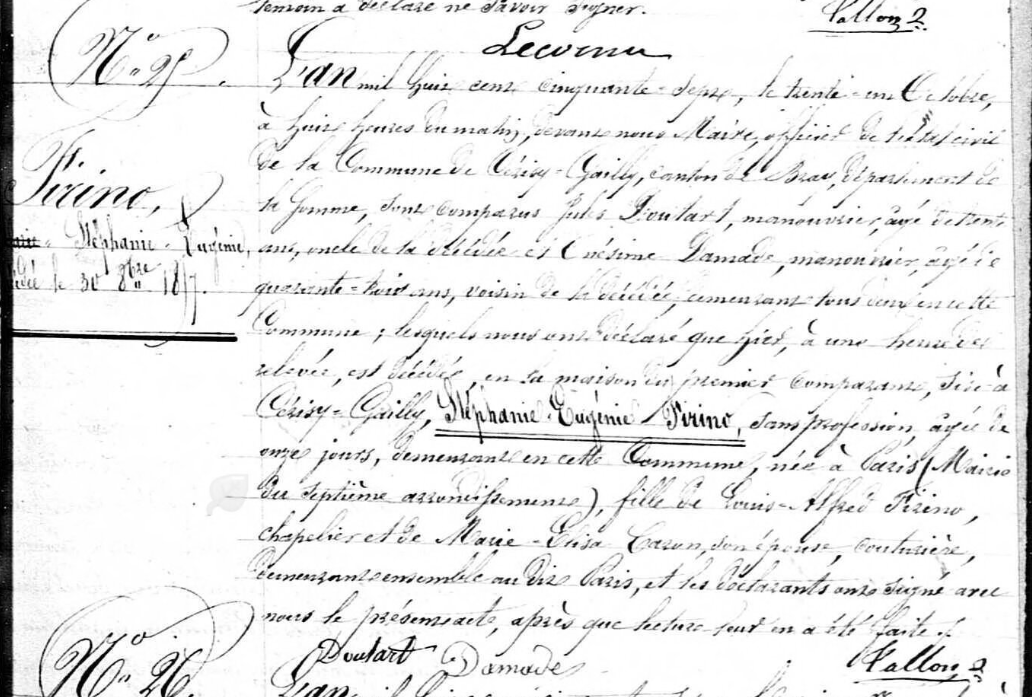 témoin a déclaré ne savoir signer.
Vallon 2
Lecornu
N° 25.
L'an mil huit cent cinquante-sept, le trente-un Octobre,
à huit heures du matin, devant nous Maire, officier de l'état civil
de la Commune de Cérisy-Gailly, canton de Bray, département de
la Somme, sont comparus Jules Doutart, manouvrier, âgé de trente
ans, oncle de la décédée et Onésime Damade, manouvrier, âgé de
quarante-trois ans, voisin de la décédée, demeurant tous deux en cette
Commune ; lesquels nous ont déclaré que hier, à une heure de
relevée, est décédée, en la maison du premier comparant, sise à
Cérisy-Gailly, Stéphanie-Eugénie Firino, sans profession, âgée de
onze jours, demeurant en cette Commune, née à Paris (Mairie
du septième arrondissement), fille de Louis-Alfred Firino,
chapelier et de Marie-Elisa Caron, son épouse, couturière,
demeurant ensemble au dit Paris, et les déclarants ont signé avec
nous le présent acte, après que lecture leur en a été faite.
Firino,
Stéphanie-Eugénie,
le 30 8bre 1857.
Doutart Damade Vallon 2
N° 26.
L'an mil huit